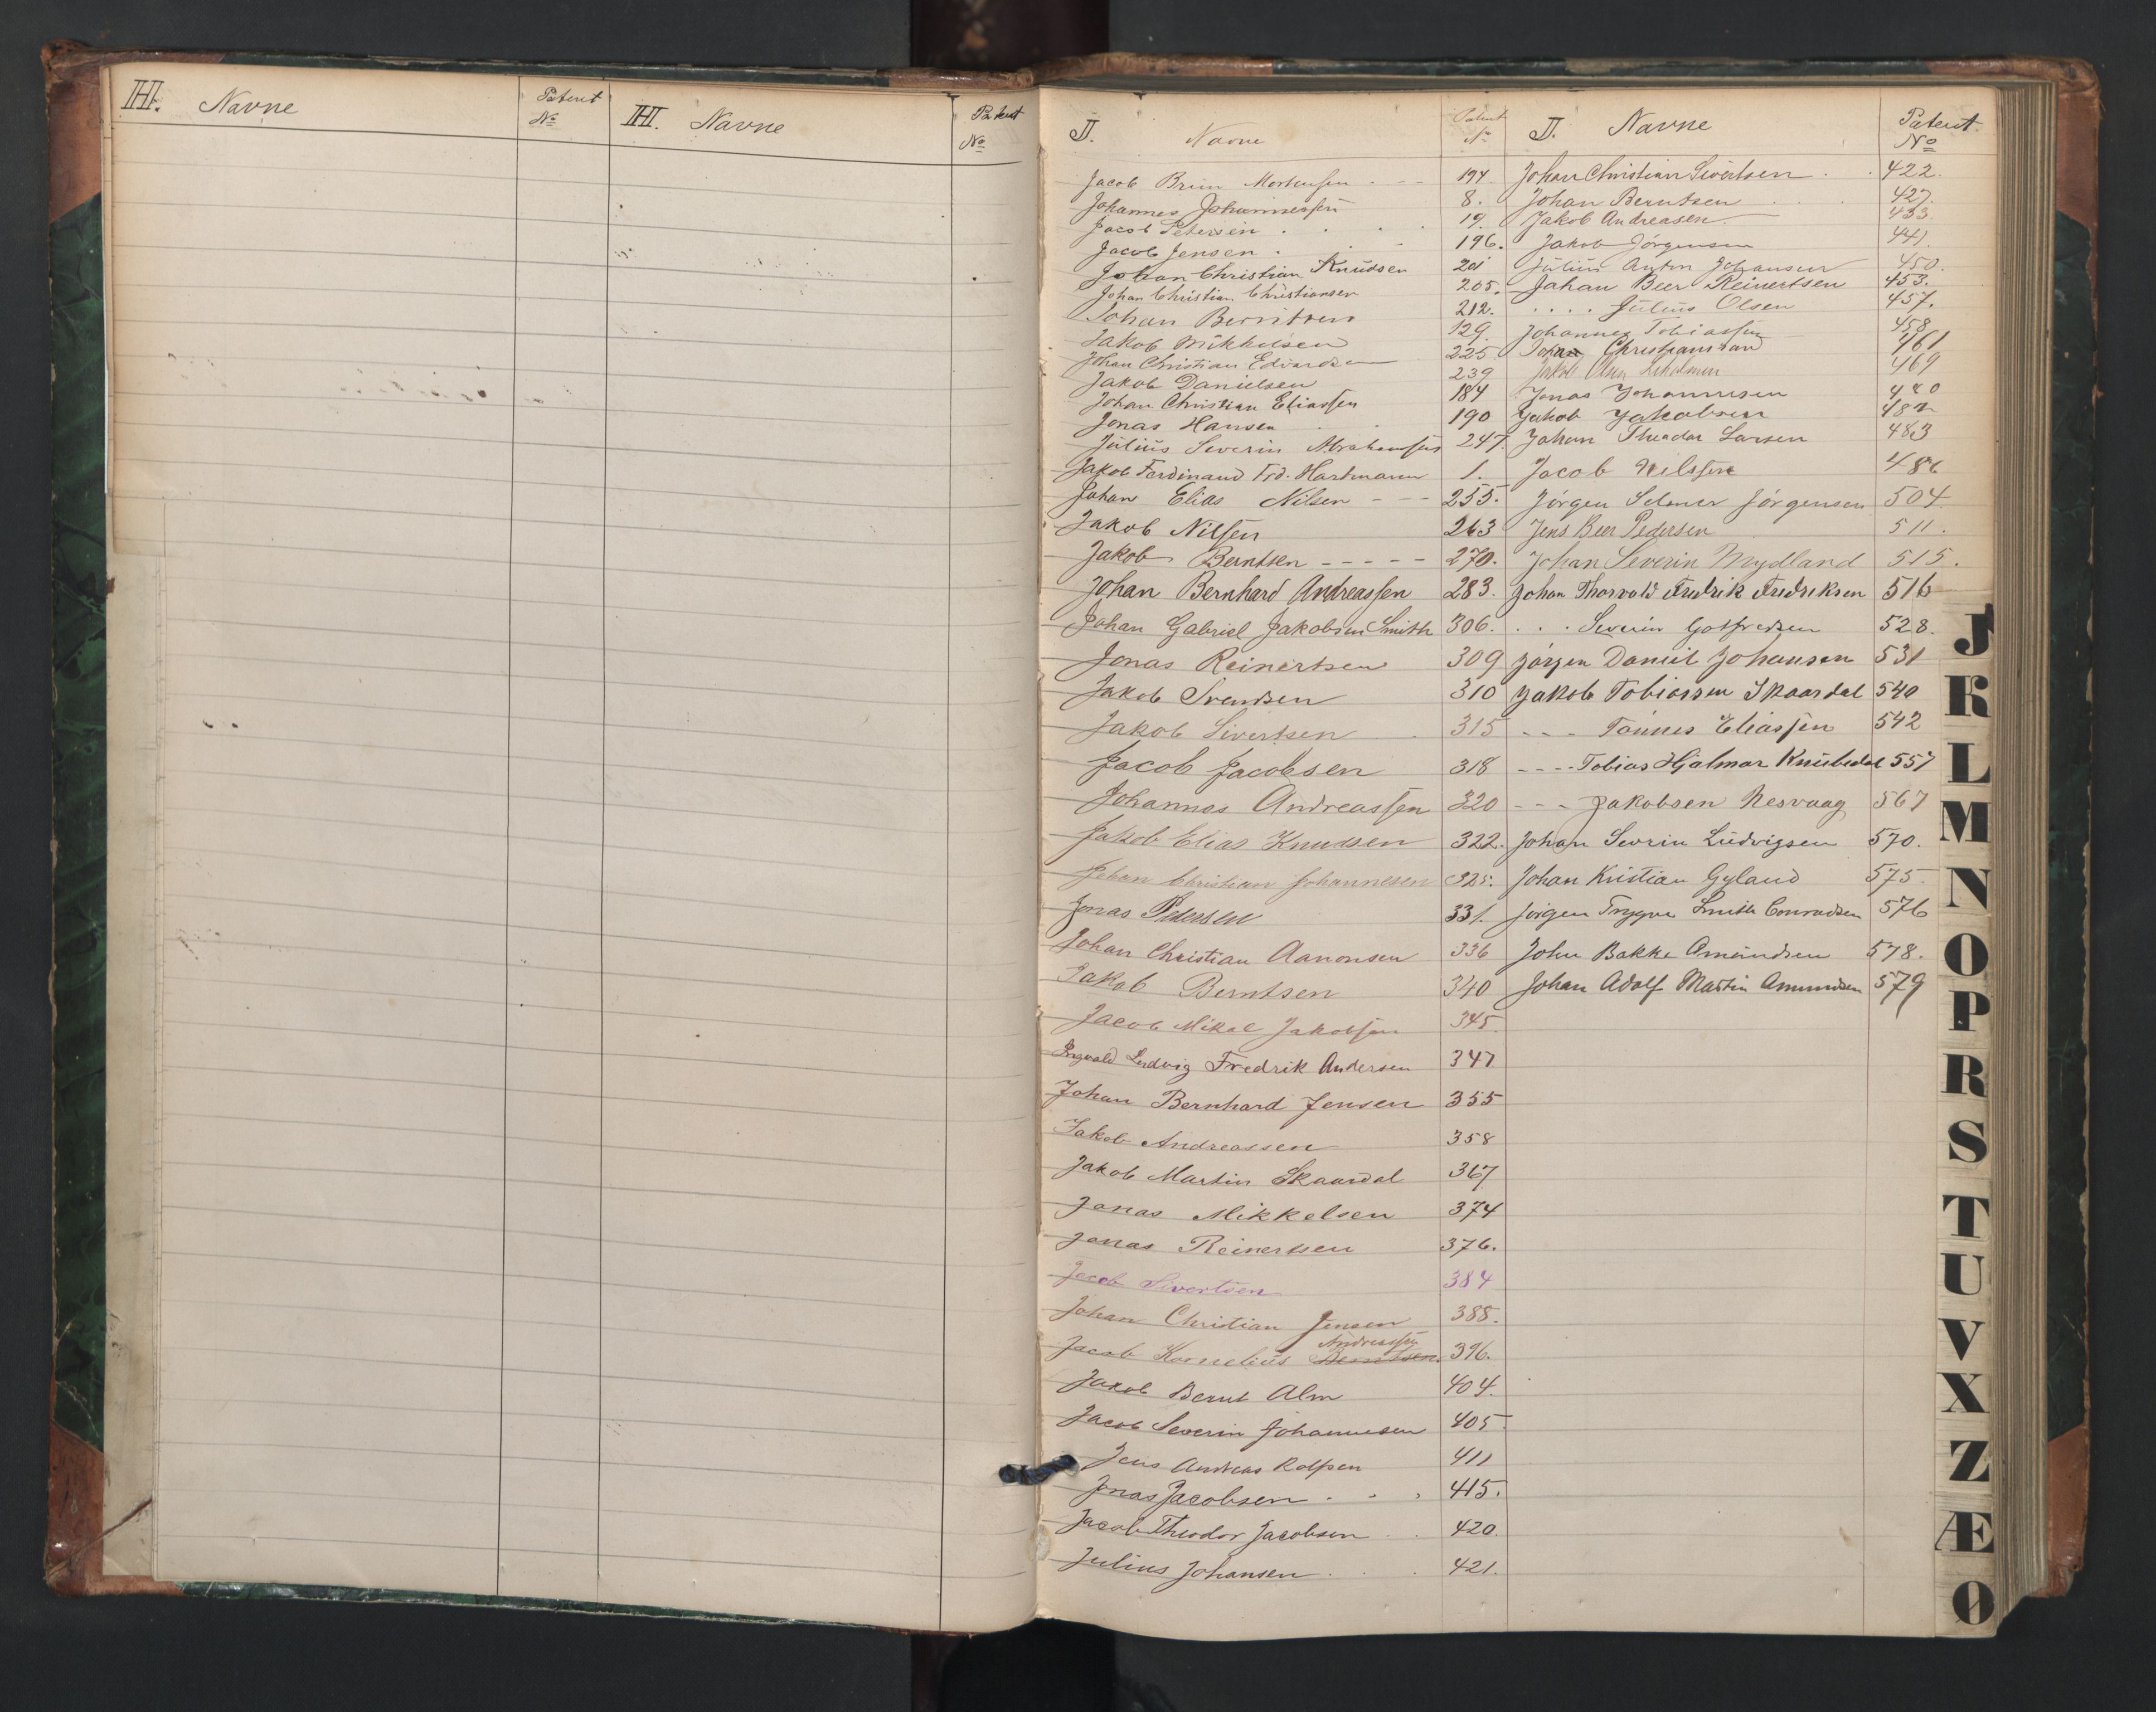 H. Navne
Patent
No
H. Navne
Patent
No
J. Navne
Patent
No
Jacob Brun Mortensen - - - 194
Johannes Johannessen 8.
Jacob Petersen . . . . 19.
Jacob Jensen . . - 196.
Johan Christian Knudsen 201
Johan Christian Christiansen 205.
Johan Berntsen 212.
Jakob Mikkelsen 129.
Johan Christian Edvardsen 225
Jakob Danielsen 239
Johan Christian Eliassen 184
Jonas Hansen 190
Julius Severin Abrahamsen 247.
Jakob Ferdinand Frd. Hartmann 1.
Johan Elias Nilsen - - - 255.
Jakob Nilsen 263
Jakob Berntsen - - - - - 270.
Johan Bernhard Andreassen 283.
Johan Gabriel Jakobsen Smith 306.
Jonas Reinertsen 309
Jakob Svendsen 310
Jakob Sivertsen 315
Jacob Jacobsen 318
Johannes Andreassen 320
Jakob Elias Knudsen 322.
Johan Christian Johannesen 325.
Jonas Pedersen 331.
Johan Christian Aanonsen 336
Jakob Berntsen 340
Jacob Mikal Jakobsen 345.
Ingvald Ludvig Fredrik Andersen 347
Johan Bernhard Jensen 355
Jakob Andreassen 358
Jakob Martin Skaardal 367
Jonas Mikkelsen 374
Jonas Reinertsen 376.
Jacob Sivertsen 384
Johan Christian Jensen 388.
Andreassen
Jacob Kornelius Berntsen 396.
Jakob Bernt Alm 404.
Jacob Severin Johannesen 405
Jens Andreas Rolfsen 411
Jonas Jacobsen . . . 415.
Jacob Theodor Jacobsen . . 420.
Julius Johansen . . . 421.
J. Navne
Patent.
No
Johan Christian Sivertsen . . 422.
Johan Berntsen . . . 427.
Jakob Andreasen 433
Jakob Jörgensen 441.
Julius Anton Johansen 450.
Johan Beer Reinertsen 453.
. . . . Julius Olsen 457.
Johannes Tobiassen 458
Johan Christiansand 461
Jakob Olsen 469
Jonas Johannesen 480
Jakob Jakobsen 482
Johan Theodor Larsen 483
Jacob Nilssen 486
Jörgen Selmer Jörgensen 504
Jens Beer Pedersen 511.
Johan Severin Mydland 515.
Johan Thorvald Fredrik Fredriksen 516
. . . Severin Gotfredsen 528.
Jörgen Daniel Johansen 531
Jakob Tobiassen Skaardal 540
- - - Tönnes Eliassen 542
- - - - Tobias Hjalmar Knibedal 557
- - - Jakobsen Nesvaag 567
Johan Sevrin Ludvigsen 570.
Johan Kristian Gyland 575.
Jörgen Trygve Smith Conradsen 576
John Bakke Amundsen 578.
Johan Adolf Martin Amundsen 579
J
K
L
M
N
O
P
R
S
T
U
V
X
Z
Æ
Ø